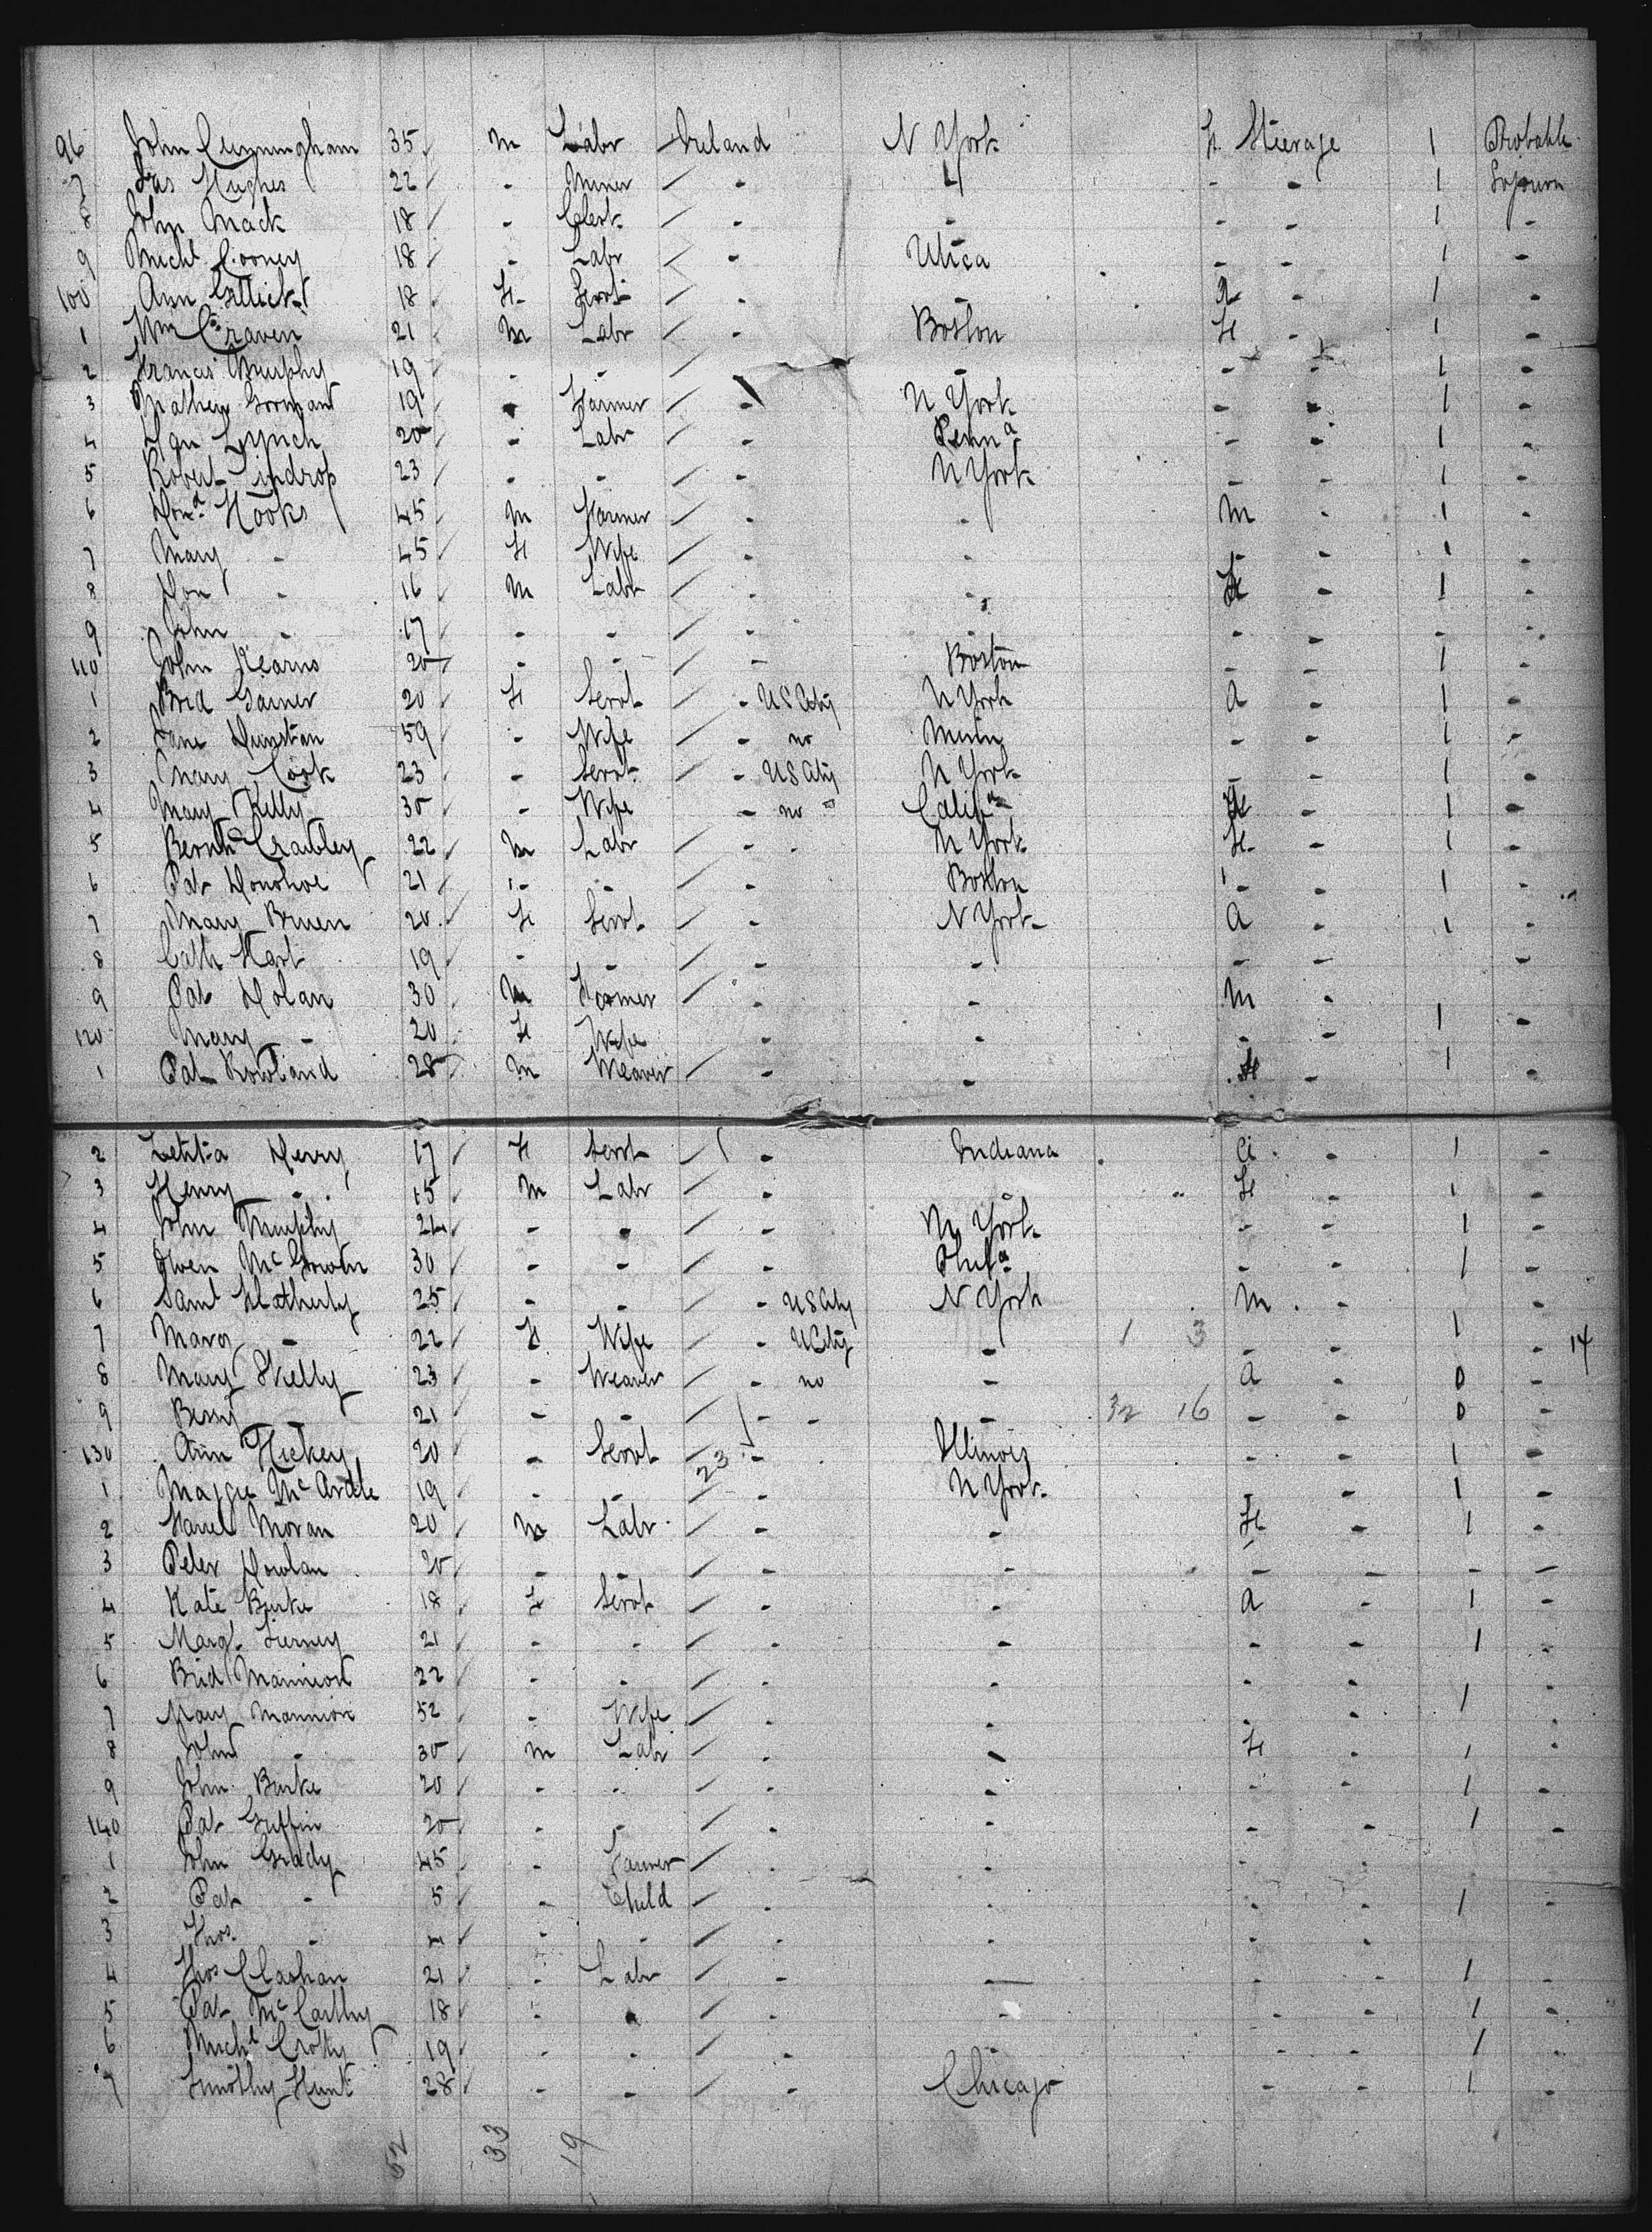 96 John Cunningham 35 M Labr Ireland N York F Steerage 1 Probable
7 Jas Hughes 22 - Miner - - - 1 Sojourn
8 John Mack 18 - Clerk - - - - 1 -
9 Michl Cooney 18 - Labr - Utica - - 1 -
100 Ann 18 F Servt - - A - 1 -
1 Wm Craven 21 M Labr - Boston F - 1 -
2 Francis Murphy 19 - - - - - - 1 -
3 Mathew Gorman 19 - Farmer - N York - - 1 -
4 Dan Lynch 20 - Labr - Penna - - 1 -
5 Robert 23 - - - N York - - 1 -
6 Hooks 45 M Farmer - - M - 1 -
7 Mary - 45 F Wife - - - - 1 -
8 - 16 M Labr - - F - 1 -
9 John - 17 - - - - - - -
110 John Kearns 20 - - - Boston - - 1 -
1 Brid Garner 20 F Servt - US City N York A - 1 -
2 Jane Dunstan 59 - Wife - no Minn - - 1 -
3 Mary Cook 23 - Servt - US City N York - - 1 -
4 Mary Kelly 30 - Wife - no Califa F - 1 -
5 Bernd Crawley 22 M Labr - - N York F - 1 -
6 Pat Donohoe 21 - - - Boston - - 1 -
7 Mary Bruen 20 F Servt - N York A - 1 -
8 Cath Hart 19 - - - - - - -
9 Pat Dolan 30 M Farmer - - M -
120 Mary - 20 F Wife - - - - 1 -
1 Pat Rowland 28 M Weaver - - F - 1 -
2 Letitia Derry 17 F Servt - Indiana A - 1 -
3 Henry - 15 M Labr - F - 1 -
4 John Murphy 24 - - - N York - - 1 -
5 Owen McGowan 30 - - - Phila - - 1 -
6 Saml Hatherly 25 - - - US City N York M -
7 Mary - 22 F Wife - U City - 1 3 - - 1 - 14
8 Mary Skelly 23 - Weaver - no - A - 0 -
9 Bessy - 21 - - - - - 32 16 - - 0 -
130 Ann Hickey 20 - Servt 23 - Illinois - - 1 -
1 Maggie McArdle 19 - - - N York - - 1 -
2 Moran 20 M Labr - - F - 1 -
3 Peter Dowlan 20 - - - - - - - -
4 Kate Burke 18 F Servt - - A - 1 -
5 Margt Tierney 21 - - - - - - 1 -
6 Brid Mannion 22 - - - - - - -
7 Mary Mannion 52 - Wife - - - - 1 -
8 John - 30 M Labr - - F - 1 -
9 John Burke 20 - - - - - - 1 -
140 Pat Griffin 20 - - - - - - 1 -
1 John Grady 45 - Farmer - - - -
2 Pat - 5 - Child - - - - 1 -
3 Thos - 4 - - - - - -
4 Thos Clashan 21 - Labr - - - - 1 -
5 Pat McCarthy 18 - - - - - - 1 -
6 Michl Crotty 19 - - - - - - 1 -
7 Timothy Hunt 28 - - - Chicago - - 1 -
52 33 19